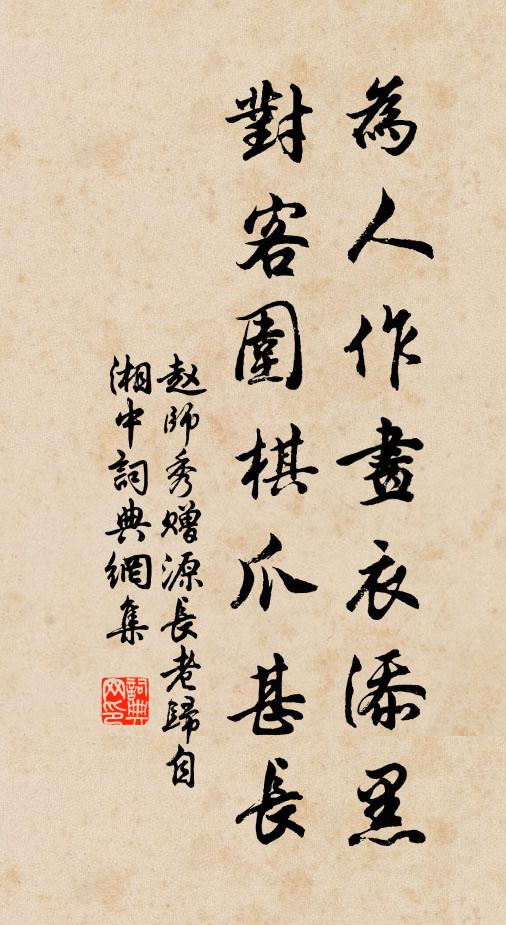 為人作畫衣添黑
對客圍棋爪甚長
赵師秀贈源長老歸自
湘中詞典網集
詞典
网印